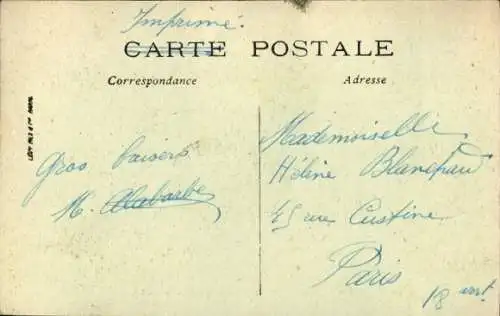 Imprimé.
CARTE POSTALE
Correspondance
Adresse
LÉVY FILS & Cie PARIS
Gros baisers
M. Alabarbe
Mademoiselle
Hélène
45 rue Custine
Paris
18 arrt.